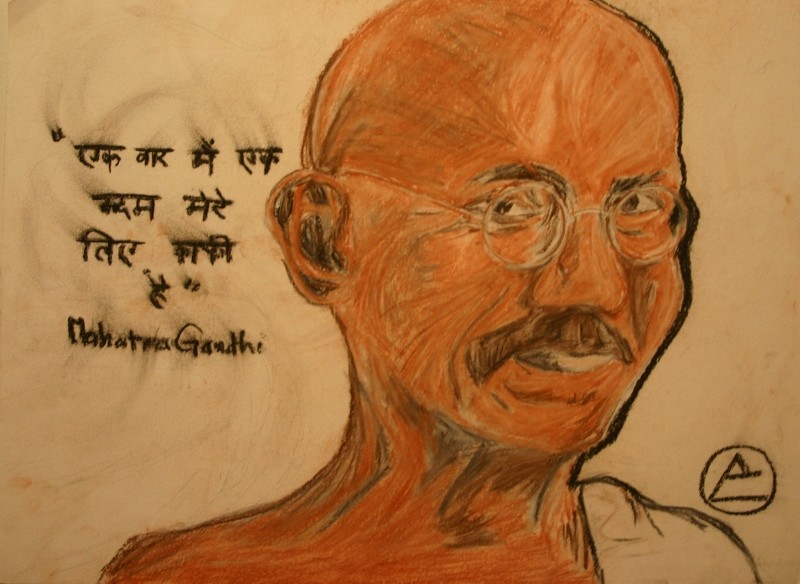 "एक वार में एक
कदम मेरे
लिए काफी
है"
Mahatma Gandhi